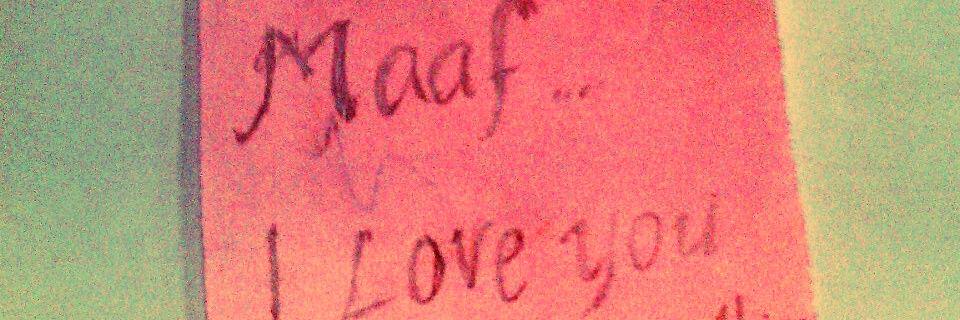 Maaf...
I Love you